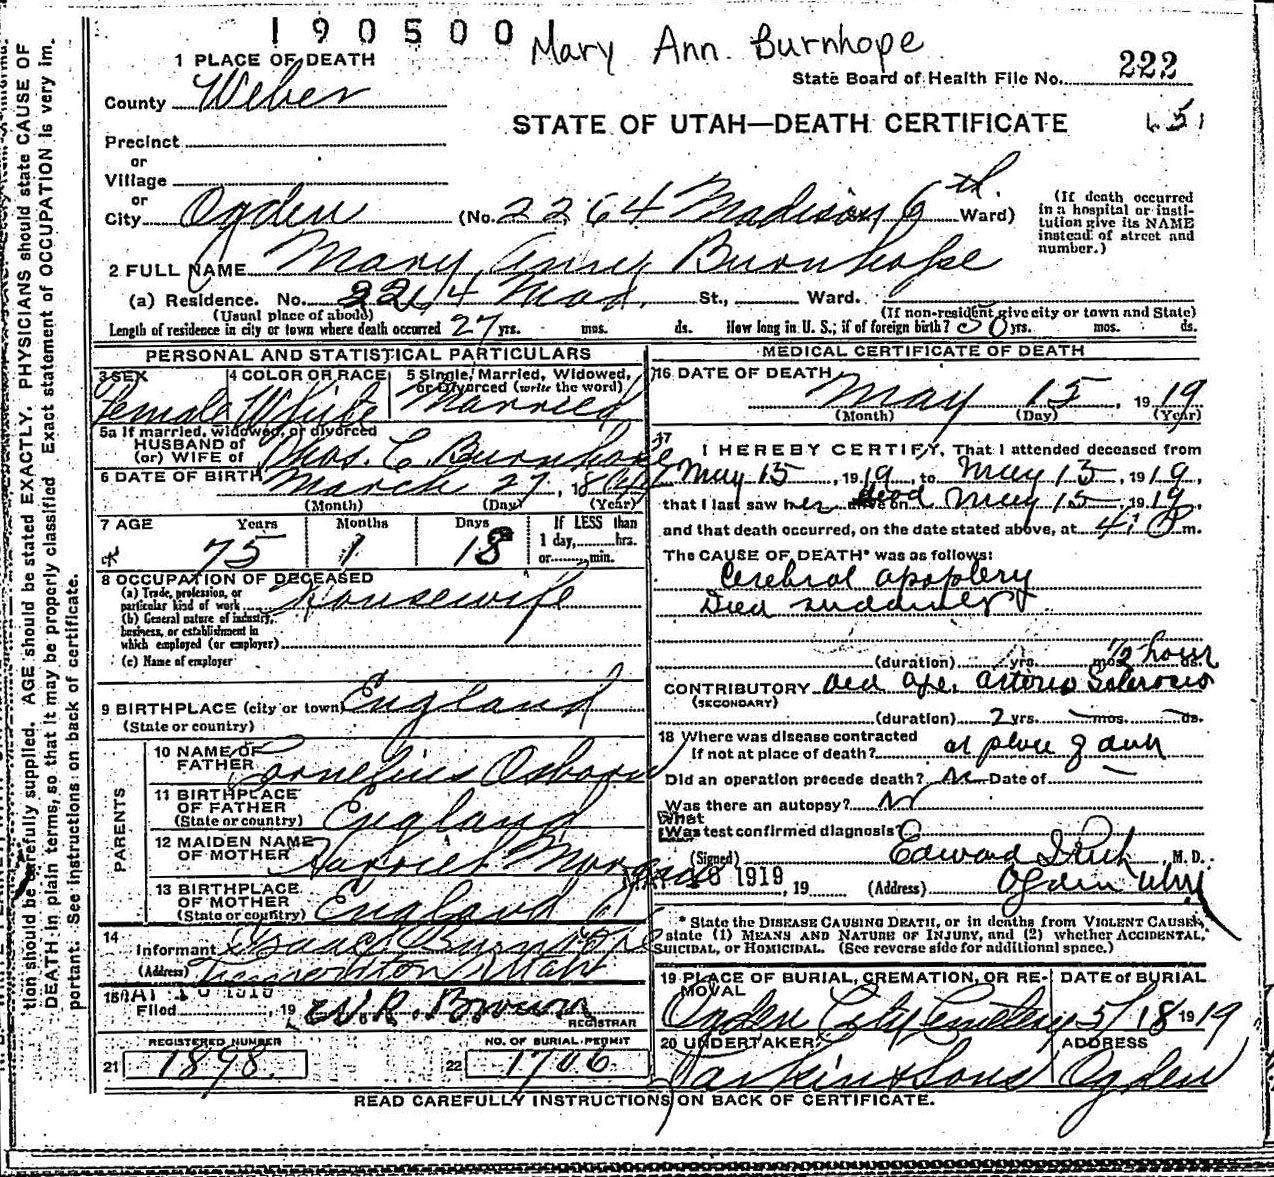 1 9 0 5 0 0 1 Mary Ann Burnhope
1 PLACE OF DEATH
State Board of Health File No. 222
County Weber
STATE OF UTAH—DEATH CERTIFICATE
Precinct
or
Village
or
City Ogden (No. 2264 Madison 6th Ward)
(If death occurred in a hospital or insti-
tution give its NAME
instead of street and
number.)
2 FULL NAME Mary Ann Burnhope
(a) Residence. No. 2264 Mad. St., Ward.
(Usual place of abode) (If non-resident give city or town and State)
Length of residence in city or town where death occurred 27 yrs. mos. ds. How long in U. S.; if of foreign birth? 50 yrs. mos. ds.
PERSONAL AND STATISTICAL PARTICULARS
3 SEX 4 COLOR OR RACE 5 Single, Married, Widowed,
or Divorced (write the word)
Female White Married
5a If married, widowed, or divorced
HUSBAND of
(or) WIFE of Thos. C. Burnhope
6 DATE OF BIRTH March 27, 18
(Month) (Day) (Year)
7 AGE Years Months Days If LESS than
1 day, hrs.
or min.
75 1 18
8 OCCUPATION OF DECEASED
(a) Trade, profession, or
particular kind of work Housewife
(b) General nature of industry,
business, or establishment in
which employed (or employer)
(c) Name of employer
9 BIRTHPLACE (city or town) England
(State or country)
PARENTS
10 NAME OF
FATHER Cornelius Osborn
11 BIRTHPLACE
OF FATHER
(State or country) England
12 MAIDEN NAME
OF MOTHER Harriet Morgan
13 BIRTHPLACE
OF MOTHER
(State or country) England
14
Informant Isaac Burnhope
(Address) Tremonton Utah
15
Filed , 19 W.R. Brown
REGISTRAR
REGISTERED NUMBER NO. OF BURIAL PERMIT
21 1898. 22 1706
MEDICAL CERTIFICATE OF DEATH
16 DATE OF DEATH
May 15, 1919
(Month) (Day) (Year)
17
I HEREBY CERTIFY, That I attended deceased from
May 15, 1919, to May 15, 1919,
that I last saw her dead alive on May 15, 1919,
and that death occurred, on the date stated above, at 4: P m.
The CAUSE OF DEATH* was as follows:
Cerebral apoplexy
Died suddenly
(duration) yrs. mos. 1/2 hour ds.
CONTRIBUTORY Old age, arterio Sclerosis
(SECONDARY)
(duration) 2 yrs. mos. ds.
18 Where was disease contracted
if not at place of death? at place of death
Did an operation precede death? no Date of
Was there an autopsy? no
What
Was test confirmed diagnosis?
(Signed) Edward I Rich M. D.
1919, 19 (Address) Ogden Utah
* State the DISEASE CAUSING DEATH, or in deaths from VIOLENT CAUSES,
state (1) MEANS AND NATURE OF INJURY, and (2) whether ACCIDENTAL,
SUICIDAL, OR HOMICIDAL. (See reverse side for additional space.)
19 PLACE OF BURIAL, CREMATION, OR RE-
MOVAL
DATE of BURIAL
Ogden City Cemetery 5/18 1919
20 UNDERTAKER ADDRESS
Larkin & Sons Ogden
READ CAREFULLY INSTRUCTIONS ON BACK OF CERTIFICATE.
tion should be carefully supplied. AGE should be stated EXACTLY. PHYSICIANS should state CAUSE OF
DEATH in plain terms, so that it may be properly classified. Exact statement of OCCUPATION is very im-
portant. See instructions on back of certificate.